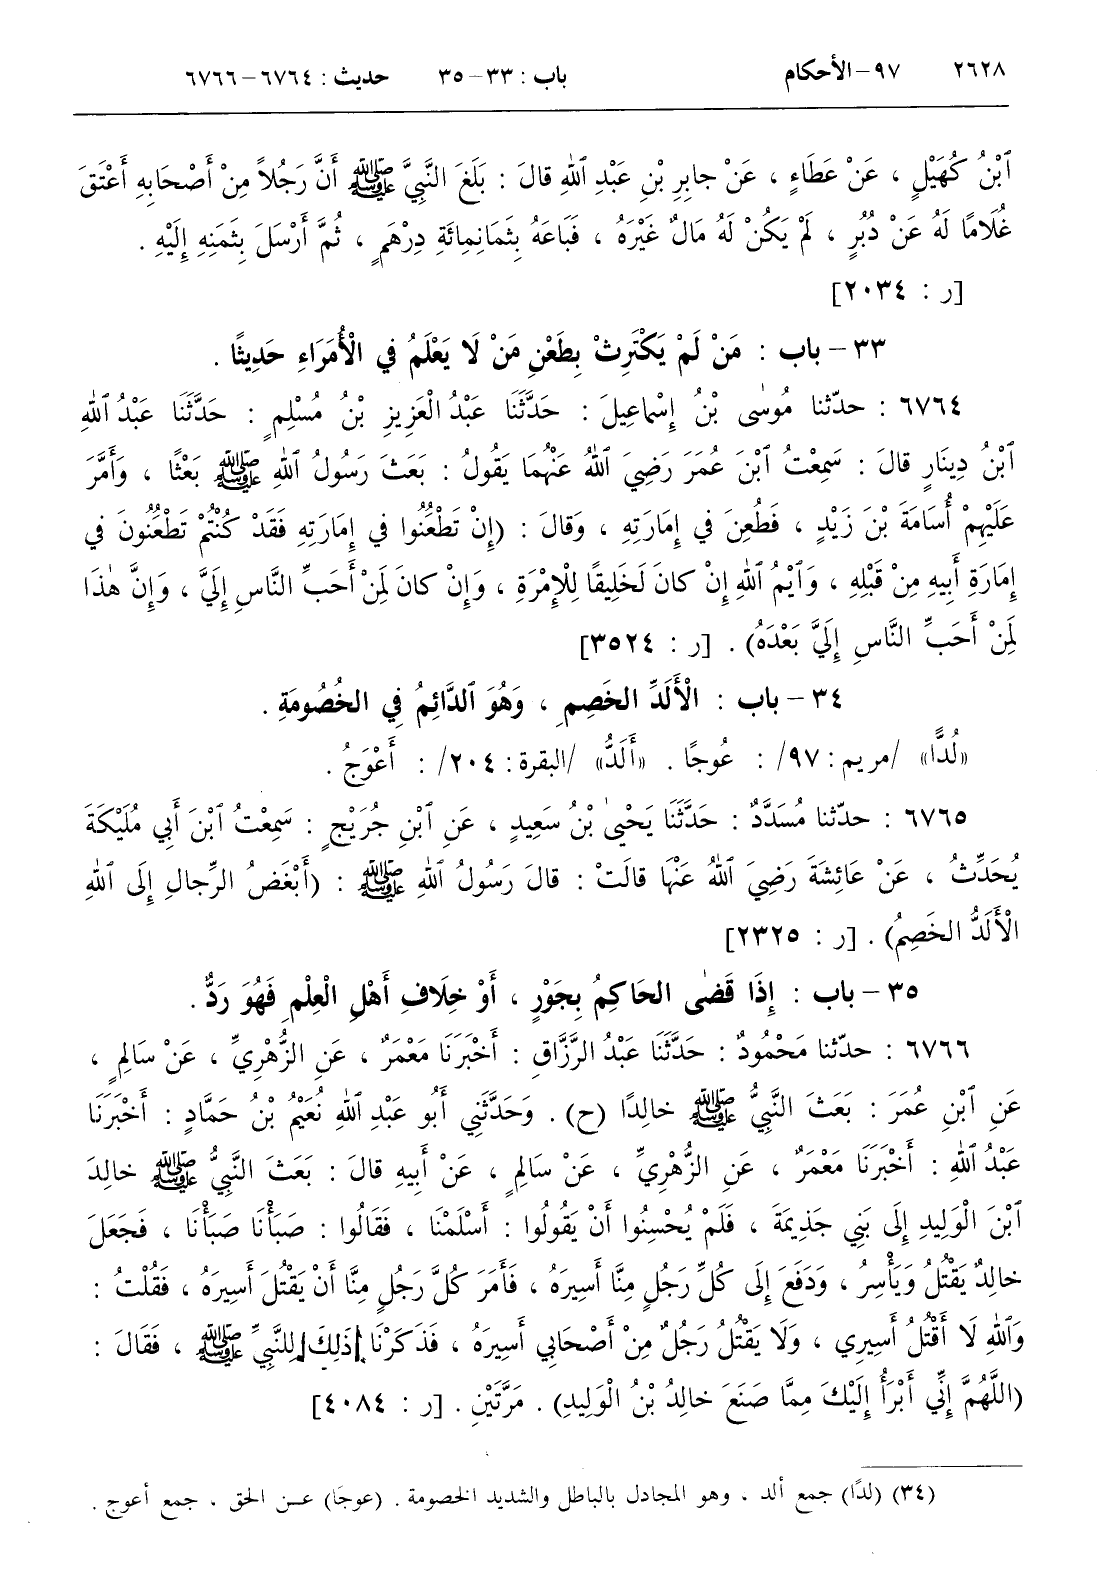 ٢٦٢٨ ٩٧-الأحكام باب : ٣٣-٣٥ حديث : ٦٧٦٤-٦٧٦٦
ٱبْنُ كُهَيْلٍ ، عَنْ عَطَاءٍ ، عَنْ جابِرِ بْنِ عَبْدِ ٱللهِ قالَ : بَلَغَ النَّبِيَّ ﷺ أَنَّ رَجُلاً مِنْ أَصْحَابِهِ أَعْتَقَ
غُلَامًا لَهُ عَنْ دُبُرٍ ، لَمْ يَكُنْ لَهُ مَالٌ غَيْرَهُ ، فَبَاعَهُ بِثَمَانِمِائَةِ دِرْهَمٍ ، ثُمَّ أَرْسَلَ بِثَمَنِهِ إِلَيْهِ .
[ر : ٢٠٣٤]
٣٣ - باب : مَنْ لَمْ يَكْتَرِثْ بِطَعْنِ مَنْ لَا يَعْلَمُ فِي الْأُمَرَاءِ حَدِيثًا .
٦٧٦٤ : حدّثنا مُوسٰى بْنُ إِسْماعِيلَ : حَدَّثَنَا عَبْدُ الْعَزِيزِ بْنُ مُسْلِمٍ : حَدَّثَنَا عَبْدُ ٱللهِ
ٱبْنُ دِينَارٍ قالَ : سَمِعْتُ ٱبْنَ عُمَرَ رَضِيَ ٱللهُ عَنْهُمَا يَقُولُ : بَعَثَ رَسُولُ ٱللهِ ﷺ بَعْثًا ، وَأَمَّرَ
عَلَيْهِمْ أُسَامَةَ بْنَ زَيْدٍ ، فَطُعِنَ فِي إِمَارَتِهِ ، وَقالَ : (إِنْ تَطْعُنُوا فِي إِمَارَتِهِ فَقَدْ كُنْتُمْ تَطْعُنُونَ فِي
إِمَارَةِ أَبِيهِ مِنْ قَبْلِهِ ، وَٱيْمُ ٱللهِ إِنْ كانَ لَخَلِيقًا لِلْإِمْرَةِ ، وَإِنْ كانَ لَمِنْ أَحَبِّ النَّاسِ إِلَيَّ ، وَإِنَّ هٰذَا
لَمِنْ أَحَبِّ النَّاسِ إِلَيَّ بَعْدَهُ) . [ر : ٣٥٢٤]
٣٤ - باب : الْأَلَدِّ الخَصِمِ ، وَهُوَ ٱلدَّائِمُ فِي الخُصُومَةِ .
«لُدًّا» /مريم : ٩٧/ : عُوجًا . «أَلَدُّ» /البقرة : ٢٠٤/ : أَعْوَجُ .
٦٧٦٥ : حدّثنا مُسَدَّدٌ : حَدَّثَنَا يَحْيىٰ بْنُ سَعِيدٍ ، عَنِ ٱبْنِ جُرَيْجٍ : سَمِعْتُ ٱبْنَ أَبِي مُلَيْكَةَ
يُحَدِّثُ ، عَنْ عَائِشَةَ رَضِيَ ٱللهُ عَنْهَا قالَتْ : قالَ رَسُولُ ٱللهِ ﷺ : (أَبْغَضُ الرِّجالِ إِلَى ٱللهِ
الْأَلَدُّ الخَصِمُ) . [ر : ٢٣٢٥]
٣٥ - باب : إِذَا قَضٰى الحَاكِمُ بِجَوْرٍ ، أَوْ خِلَافِ أَهْلِ الْعِلْمِ فَهُوَ رَدٌّ .
٦٧٦٦ : حدّثنا مَحْمُودٌ : حَدَّثَنَا عَبْدُ الرَّزَّاقِ : أَخْبَرَنَا مَعْمَرٌ ، عَنِ الزُّهْرِيِّ ، عَنْ سَالِمٍ ،
عَنِ ٱبْنِ عُمَرَ : بَعَثَ النَّبِيُّ ﷺ خالِدًا (ح) . وَحَدَّثَنِي أَبُو عَبْدِ ٱللهِ نُعَيْمُ بْنُ حَمَّادٍ : أَخْبَرَنَا
عَبْدُ ٱللهِ : أَخْبَرَنَا مَعْمَرٌ ، عَنِ الزُّهْرِيِّ ، عَنْ سَالِمٍ ، عَنْ أَبِيهِ قالَ : بَعَثَ النَّبِيُّ ﷺ خالِدَ
ٱبْنَ الْوَلِيدِ إِلَى بَنِي جَذِيمَةَ ، فَلَمْ يُحْسِنُوا أَنْ يَقُولُوا : أَسْلَمْنَا ، فَقَالُوا : صَبَأْنَا صَبَأْنَا ، فَجَعَلَ
خالِدٌ يَقْتُلُ وَيَأْسِرُ ، وَدَفَعَ إِلَى كُلِّ رَجُلٍ مِنَّا أَسِيرَهُ ، فَأَمَرَ كُلَّ رَجُلٍ مِنَّا أَنْ يَقْتُلَ أَسِيرَهُ ، فَقُلْتُ :
وَٱللهِ لَا أَقْتُلُ أَسِيرِي ، وَلَا يَقْتُلُ رَجُلٌ مِنْ أَصْحَابِي أَسِيرَهُ ، فَذَكَرْنَا ذٰلِكَ لِلنَّبِيِّ ﷺ ، فَقَالَ :
(اللَّهُمَّ إِنِّي أَبْرَأُ إِلَيْكَ مِمَّا صَنَعَ خالِدُ بْنُ الْوَلِيدِ) . مَرَّتَيْنِ . [ر : ٤٠٨٤]
(٣٤) (لدًا) جمع ألد ، وهو المجادل بالباطل والشديد الخصومة . (عوجًا) عن الحق ، جمع أعوج .